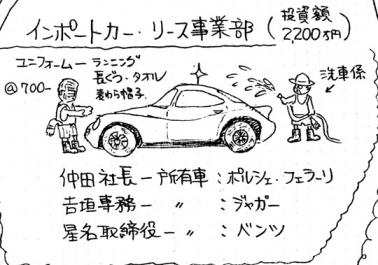 インポートカー・リース事業部(投資額
2,200万円)
ユニフォームーランニング
長ぐつ・タオル
麦わら帽子.
@700-
洗車係
仲田社長ー所有車:ポルシェ・フェラーリ
吉垣専務ー 〃 :ジャガー
星名取締役ー〃 :ベンツ